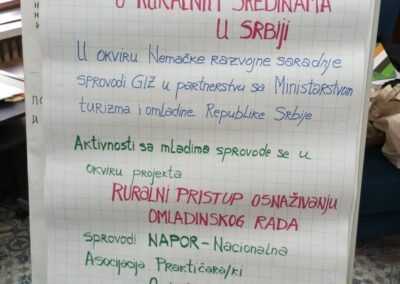 U RURALNIM SREDINAMA
U SRBIJI
U OKVIRU Nemačke RAZVOJNE SARADNJE
SPROVODI GIZ U PARTNERSTVU SA MINISTARSTVOM
TURIZMA I OMLADINE REPUBLIKE SRBIJE
AKTIVNOSTI SA MLADIMA SPROVODE SE U
OKVIRU PROJEKTA
RURALNI PRISTUP OSNAŽIVANJU
OMLADINSKOG RADA
SPROVODI NAPOR-NACIONALNA
ASOCIJACIJA PRAKTIČARA/KI